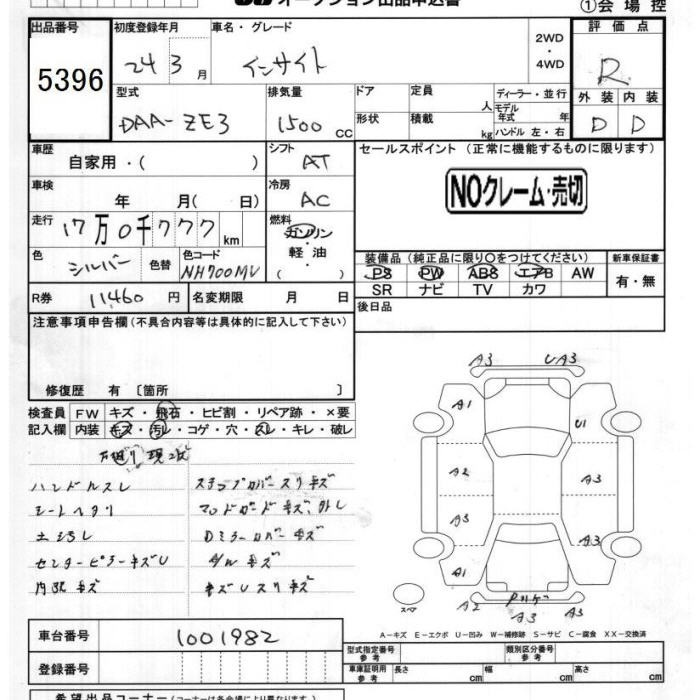 オークション出品申込書
①会場控
出品番号
5396
初度登録年月
24 3 月
車名・グレード
インサイト
2WD
・
4WD
評価点
R
外装 内装
D D
型式
DAA-ZE3
排気量
1500 cc
ドア
形状
定員 人
積載 kg
ディーラー・並行
モデル年式 年
ハンドル 左・右
車歴
自家用・( )
シフト
AT
セールスポイント (正常に機能するものに限ります)
NOクレーム・売切
車検
年 月( 日)
冷房
AC
走行
17万0千777 km
燃料
ガソリン
軽油
( )
色
シルバー
色替
色コード
NH700MV
装備品(純正品に限り〇をつけてください)
新車保証書
PS PW ABS エアB AW
SR ナビ TV カワ
有・無
R券
11460 円
名変期限 月 日
後日品
注意事項申告欄(不具合内容等は具体的に記入して下さい)
修復歴 有〔箇所 〕
検査員
記入欄
FW キズ・飛石・ヒビ割・リペア跡・×要
内装 キズ・汚レ・コゲ・穴・スレ・キレ・破レ
ハンドルスレ
シートヘタリ
センターピラーキズU
内張キズ
ステップカバースリキズ
Dミラーカバーキズ
キズUスリキズ
A3 UA3
A1 U1
A2 A3
A3 A3
A1
スペア
A2 A3 A3
A-キズ E-エクボ U-凹み W-補修跡 S-サビ C-腐食 XX-交換済
車台番号
1001982
登録番号
型式指定番号
参考
類別区分番号
参考
車庫証明用
参考
長さ cm 幅 cm 高さ cm
希望出品コーナー